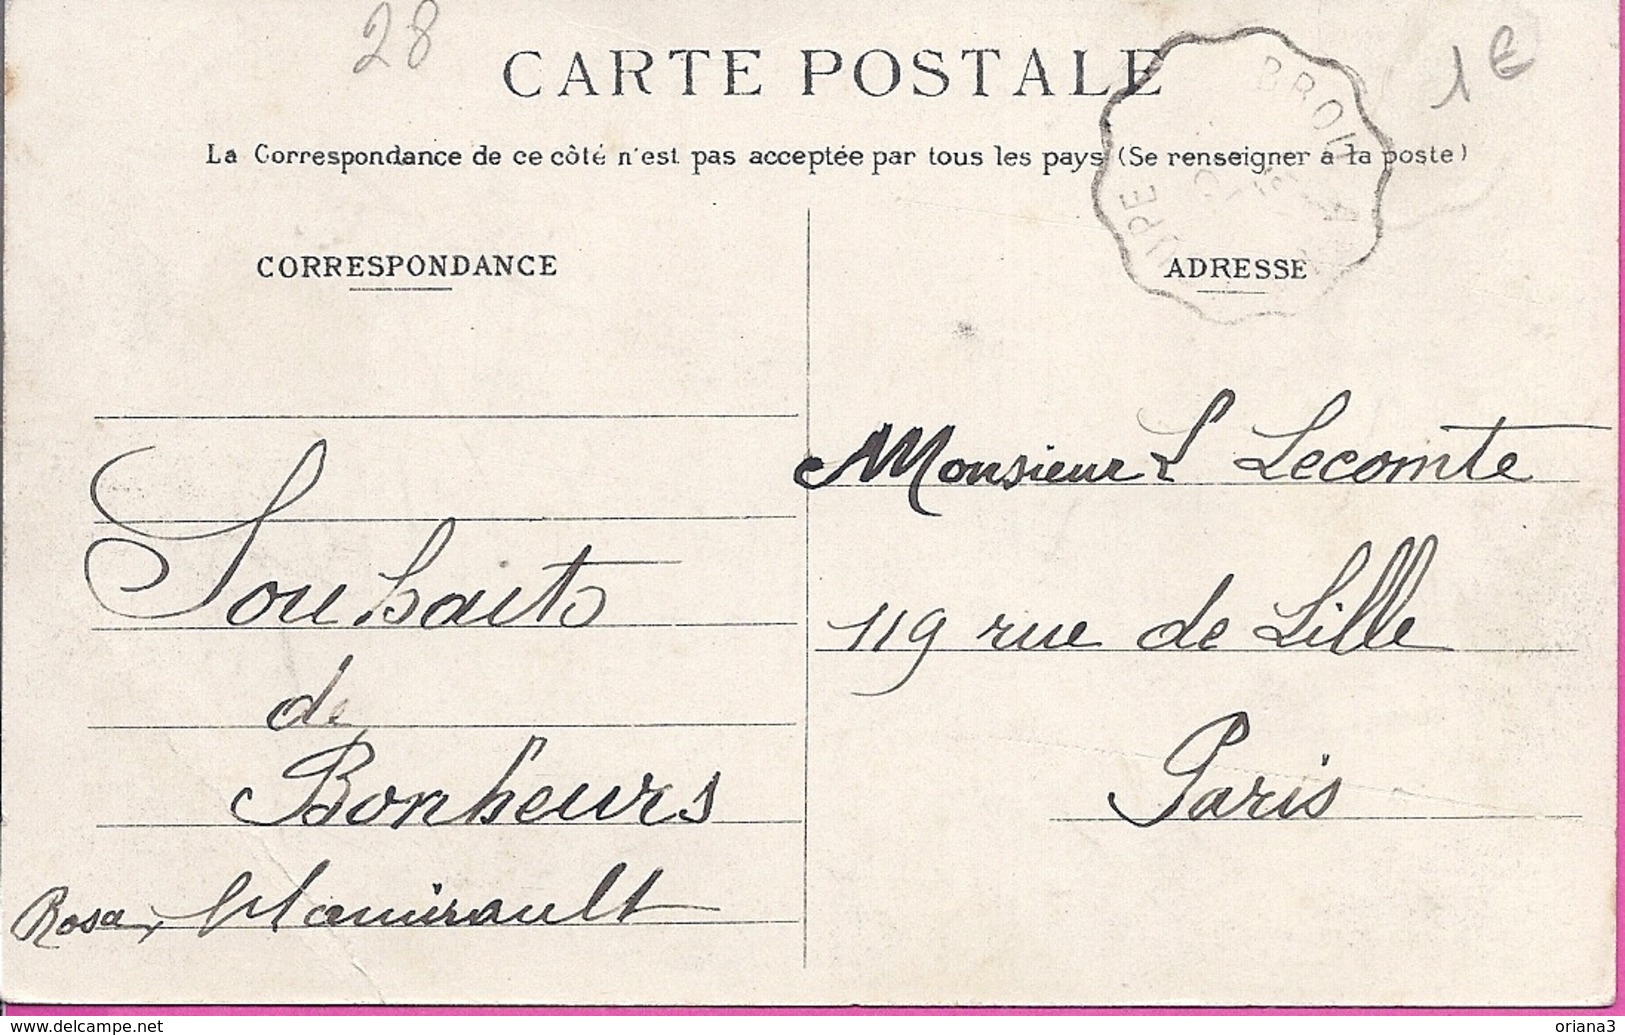 28
1€
CARTE POSTALE
La Correspondance de ce côté n'est pas acceptée par tous les pays (Se renseigner à la poste)
BROU
CORRESPONDANCE
ADRESSE
Souhaits
de
Bonheurs
Rosa
Monsieur L Lecomte
119 rue de Lille
Paris
www.delcampe.net
oriana3